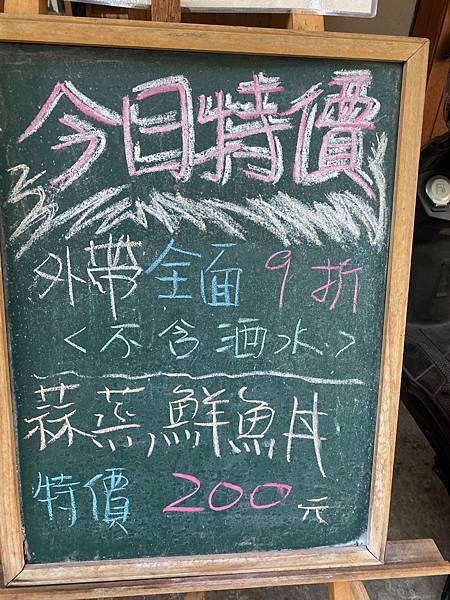 今日特價
外帶全面9折
<不含酒水>
蒜蒸鮮魚丼
特價200元